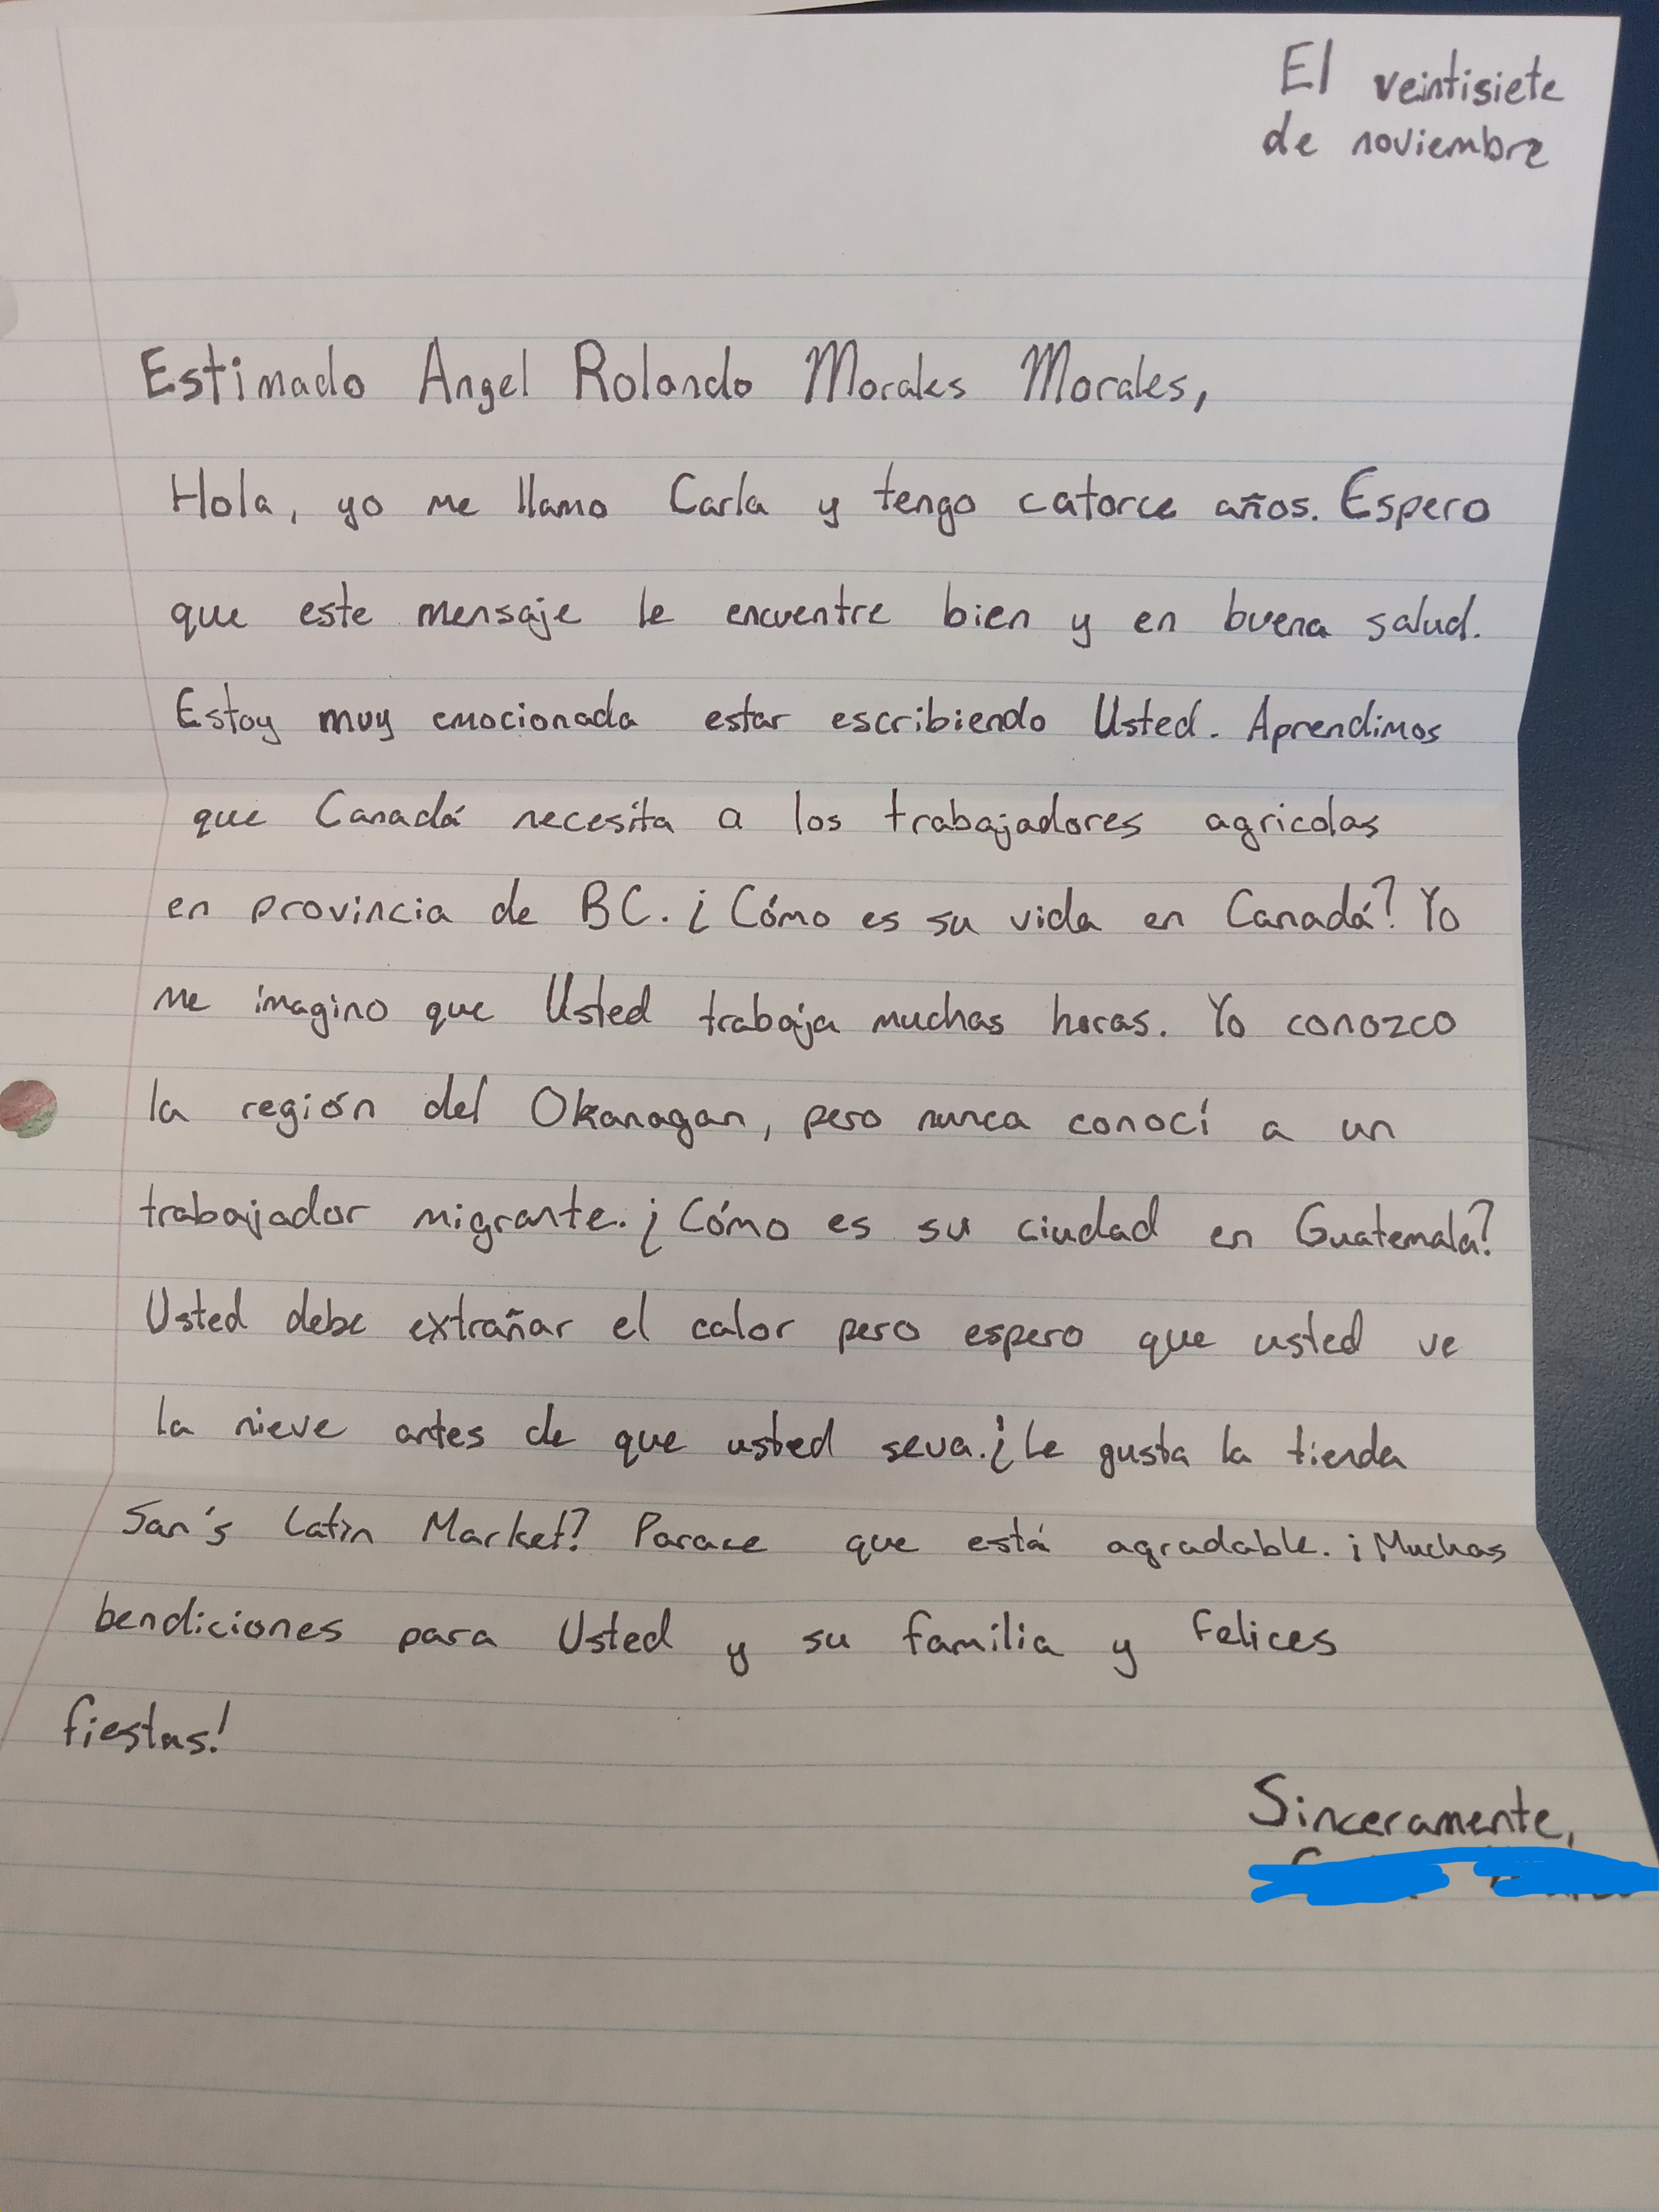 El veintisiete
de noviembre
Estimado Angel Rolando Morales Morales,
Hola, yo me llamo Carla y tengo catorce años. Espero
que este mensaje le encuentre bien y en buena salud.
Estoy muy emocionada estar escribiendo Usted. Aprendimos
que Canadá necesita a los trabajadores agricolas
en provincia de BC. ¿Cómo es su vida en Canadá? Yo
me imagino que Usted trabaja muchas horas. Yo conozco
la región del Okanagan, pero nunca conocí a un
trabajador migrante. ¿Cómo es su ciudad en Guatemala?
Usted debe extrañar el calor pero espero que usted ve
la nieve antes de que usted seva. ¿Le gusta la tienda
San's Latin Market? Parace que está agradable. ¡Muchas
bendiciones para Usted y su familia y Felices
fiestas!
Sinceramente,